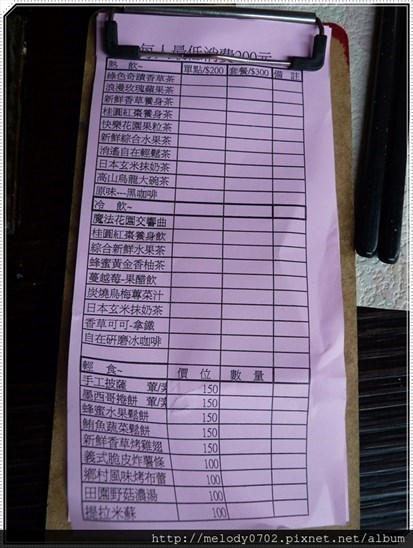 每人最低消費200元
熱 飲~ 單點/$200 套餐/$300 備 註
綠色奇蹟香草茶
浪漫玫瑰蘋果茶
新鮮香草養身茶
桂圓紅棗養身茶
快樂花園果粒茶
新鮮綜合水果茶
消遙自在輕鬆茶
日本玄米抹奶茶
高山烏龍大碗茶
原味---黑咖啡
冷 飲~
魔法花園交響曲
桂圓紅棗養身飲
綜合新鮮水果茶
蜂蜜黃金香柚茶
蔓越莓-果醋飲
炭燒烏梅蓴菜汁
日本玄米抹奶茶
香草可可-拿鐵
自在研磨冰咖啡
輕 食~ 價 位 數 量
手工披薩 葷/素 150
墨西哥捲餅 葷/素 150
蜂蜜水果鬆餅 150
鮪魚蔬菜鬆餅 150
新鮮香草烤雞翅 150
義式脆皮炸薯條 100
鄉村風味烤布蕾 100
田園野菇濃湯 100
提拉米蘇 100
http://melody0702.pixnet.net/album